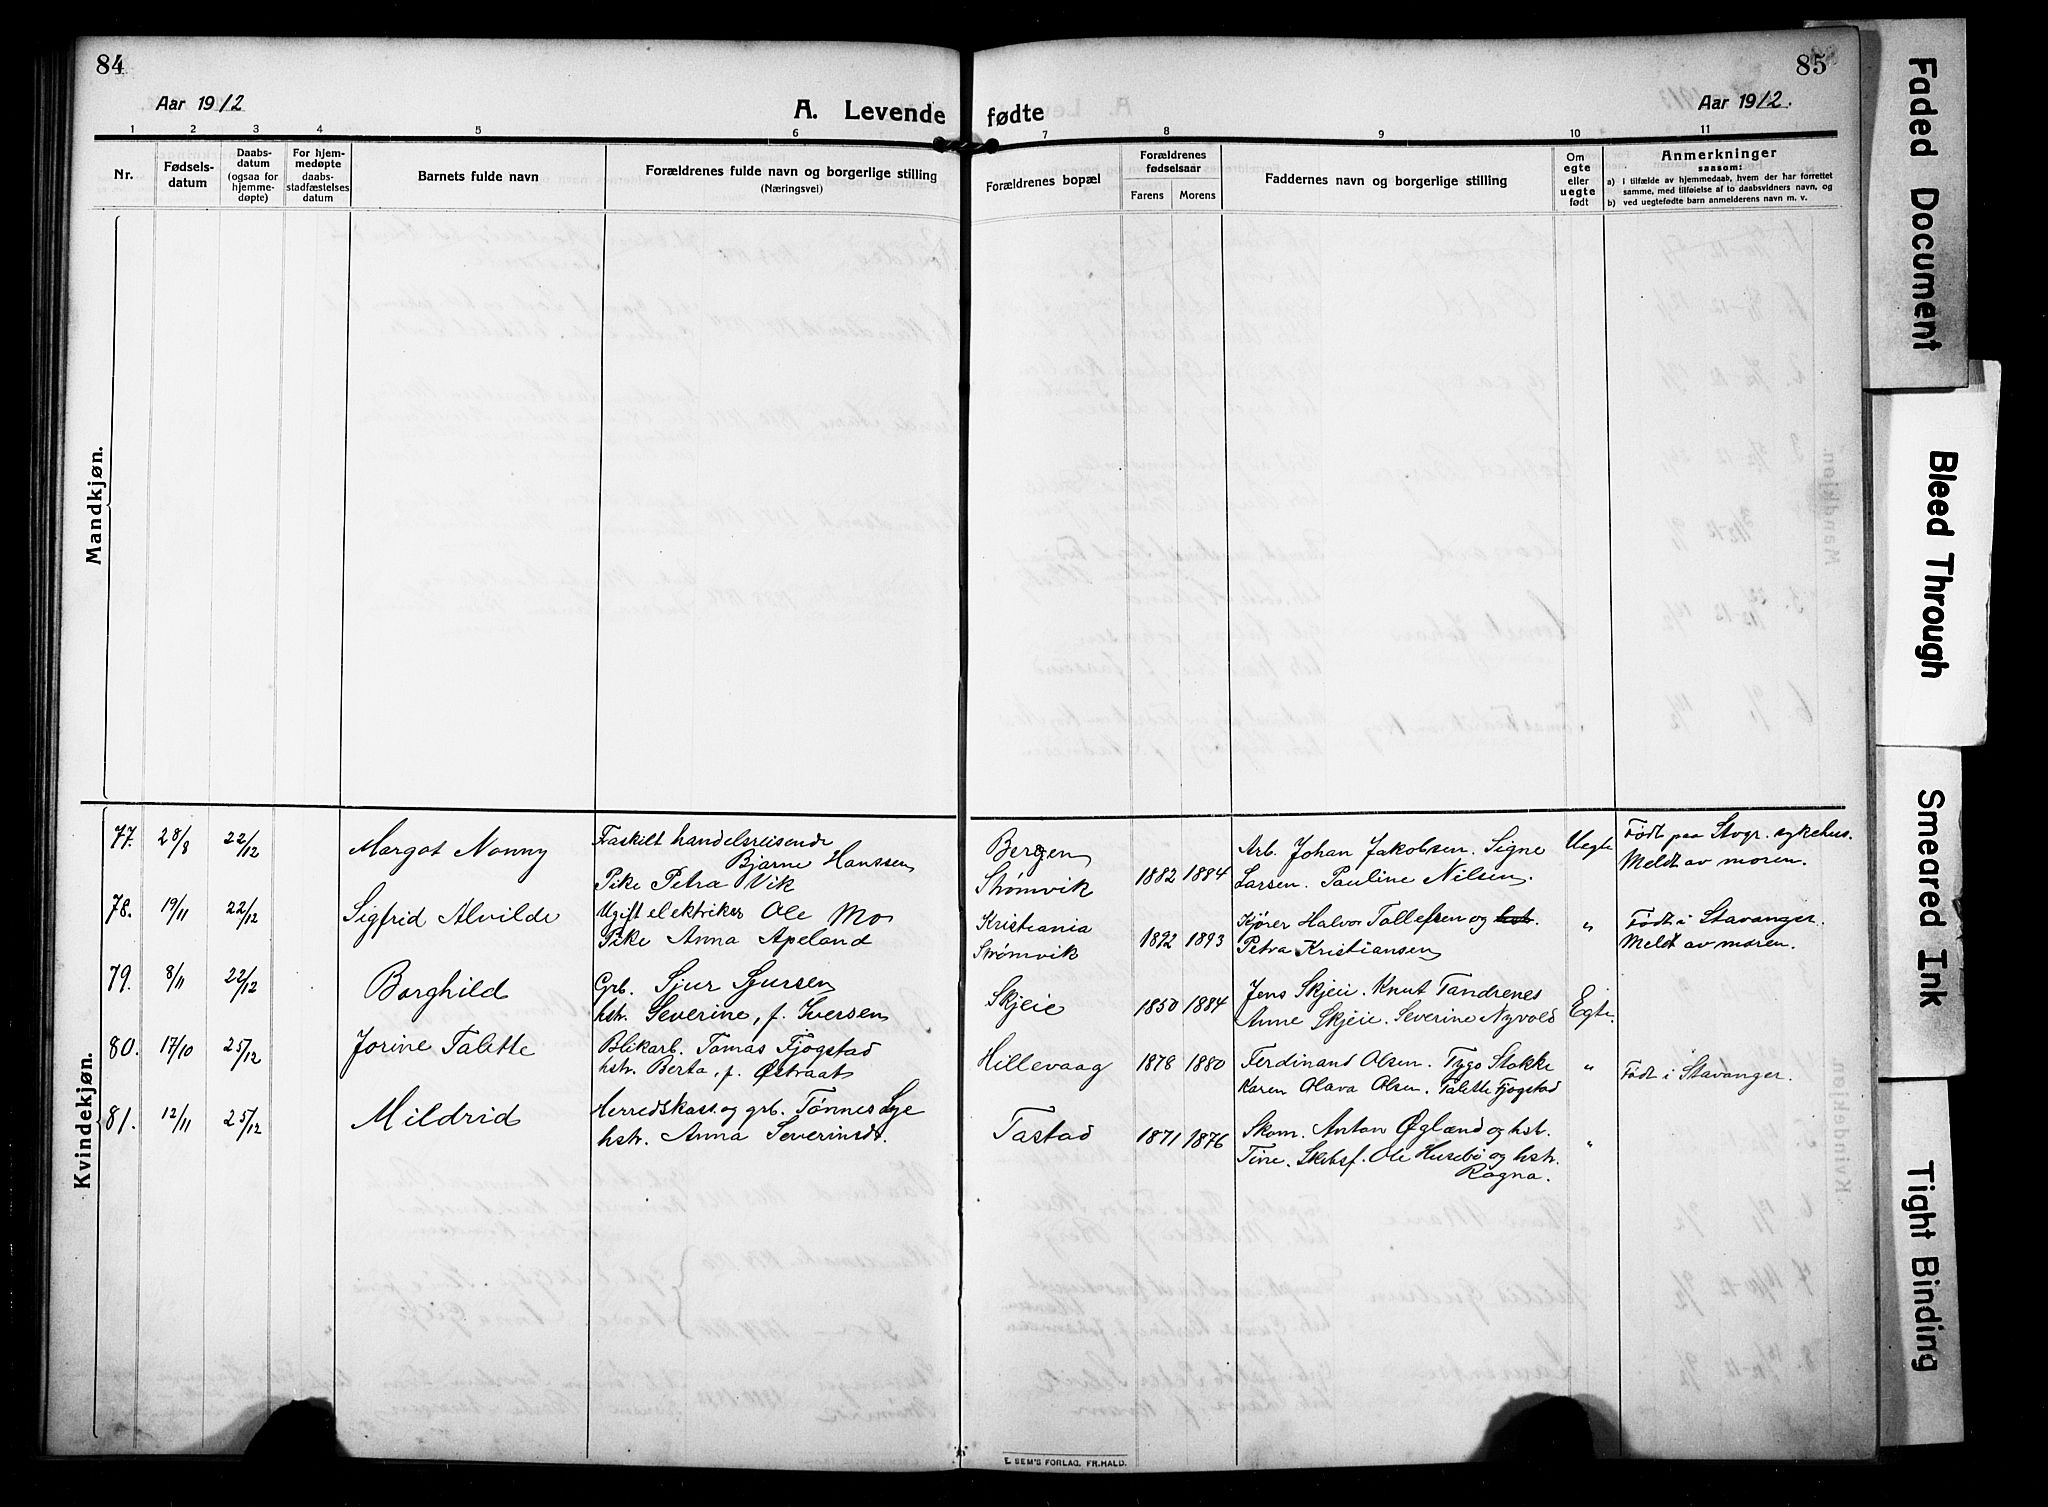 84
Aar 1912
A. Levende
fødte
85
Aar 1912.
1 2 3 4 5 6 7 8 9 10 11
Nr.
Fødsels-
datum
Daabs-
datum
(ogsaa for
hjemme-
døpte)
For hjem-
medøpte
daabs-
stadfæstelses
datum
Barnets fulde navn
Forældrenes fulde navn og borgerlige stilling
(Næringsvei)
Forældrenes bopæl
Forældrenes
fødselsaar
Farens Morens
Faddernes navn og borgerlige stilling
Om
egte
eller
uegte
født
Anmerkninger
saasom:
a) I tilfælde av hjemmedaab, hvem der har forrettet
samme, med tilføielse af to daabsvidners navn, og
b) ved uegtefødte barn anmelderens navn m. v.
Mandkjøn.
Kvindekjøn.
77. 28/8 22/12 Margot Nonny
Fraskilt handelsreisende
Bjarne Hanssen
Pike Petra Vik
Bergen
Strømvik
1882 1884
Arb. Johan Jakobsen. Signe
Larsen. Pauline Nilsen.
Uegte
Født paa Stvgr. sykehus.
Meldt av moren.
78. 19/11 22/12 Sigfrid Alvilde
Ugift elektriker Ole Mo
Pike Anna Apeland
Kristiania
Strømvik
1892 1893
Kjører Halvor Tallefsen og hst.
Petra Kristiansen
"
Født i Stavanger.
Meldt av moren.
79. 8/11 22/12 Borghild
Grb. Sjur Sjursen
hstr. Severine, f. Iversen
Skjeie
1850 1884
Jens Skjeie. Knut Tandrenes
Anne Skjeie. Severine Nyvold
Egte
80. 17/10 25/12 Jorine Talette
Blikarb. Tomas Fjogstad
hstr. Berta, f. Østraat
Hillevaag
1878 1880
Ferdinand Olsen. Tygo Stokke
Karen Olava Olsen. Talette Fjogstad
"
Født i Stavanger.
81. 12/11 25/12 Mildrid
Herredskass. og grb. Tønnes Lye
hstr. Anna Severinsdt.
Tastad
1871 1876
Skom. Anton Øglænd og hst.
Tine. Skibsf. Ole Husebø og hstr.
Ragna.
"
E. SEM'S FORLAG, FR.HALD.
Faded Document
Bleed Through
Smeared Ink
Tight Binding